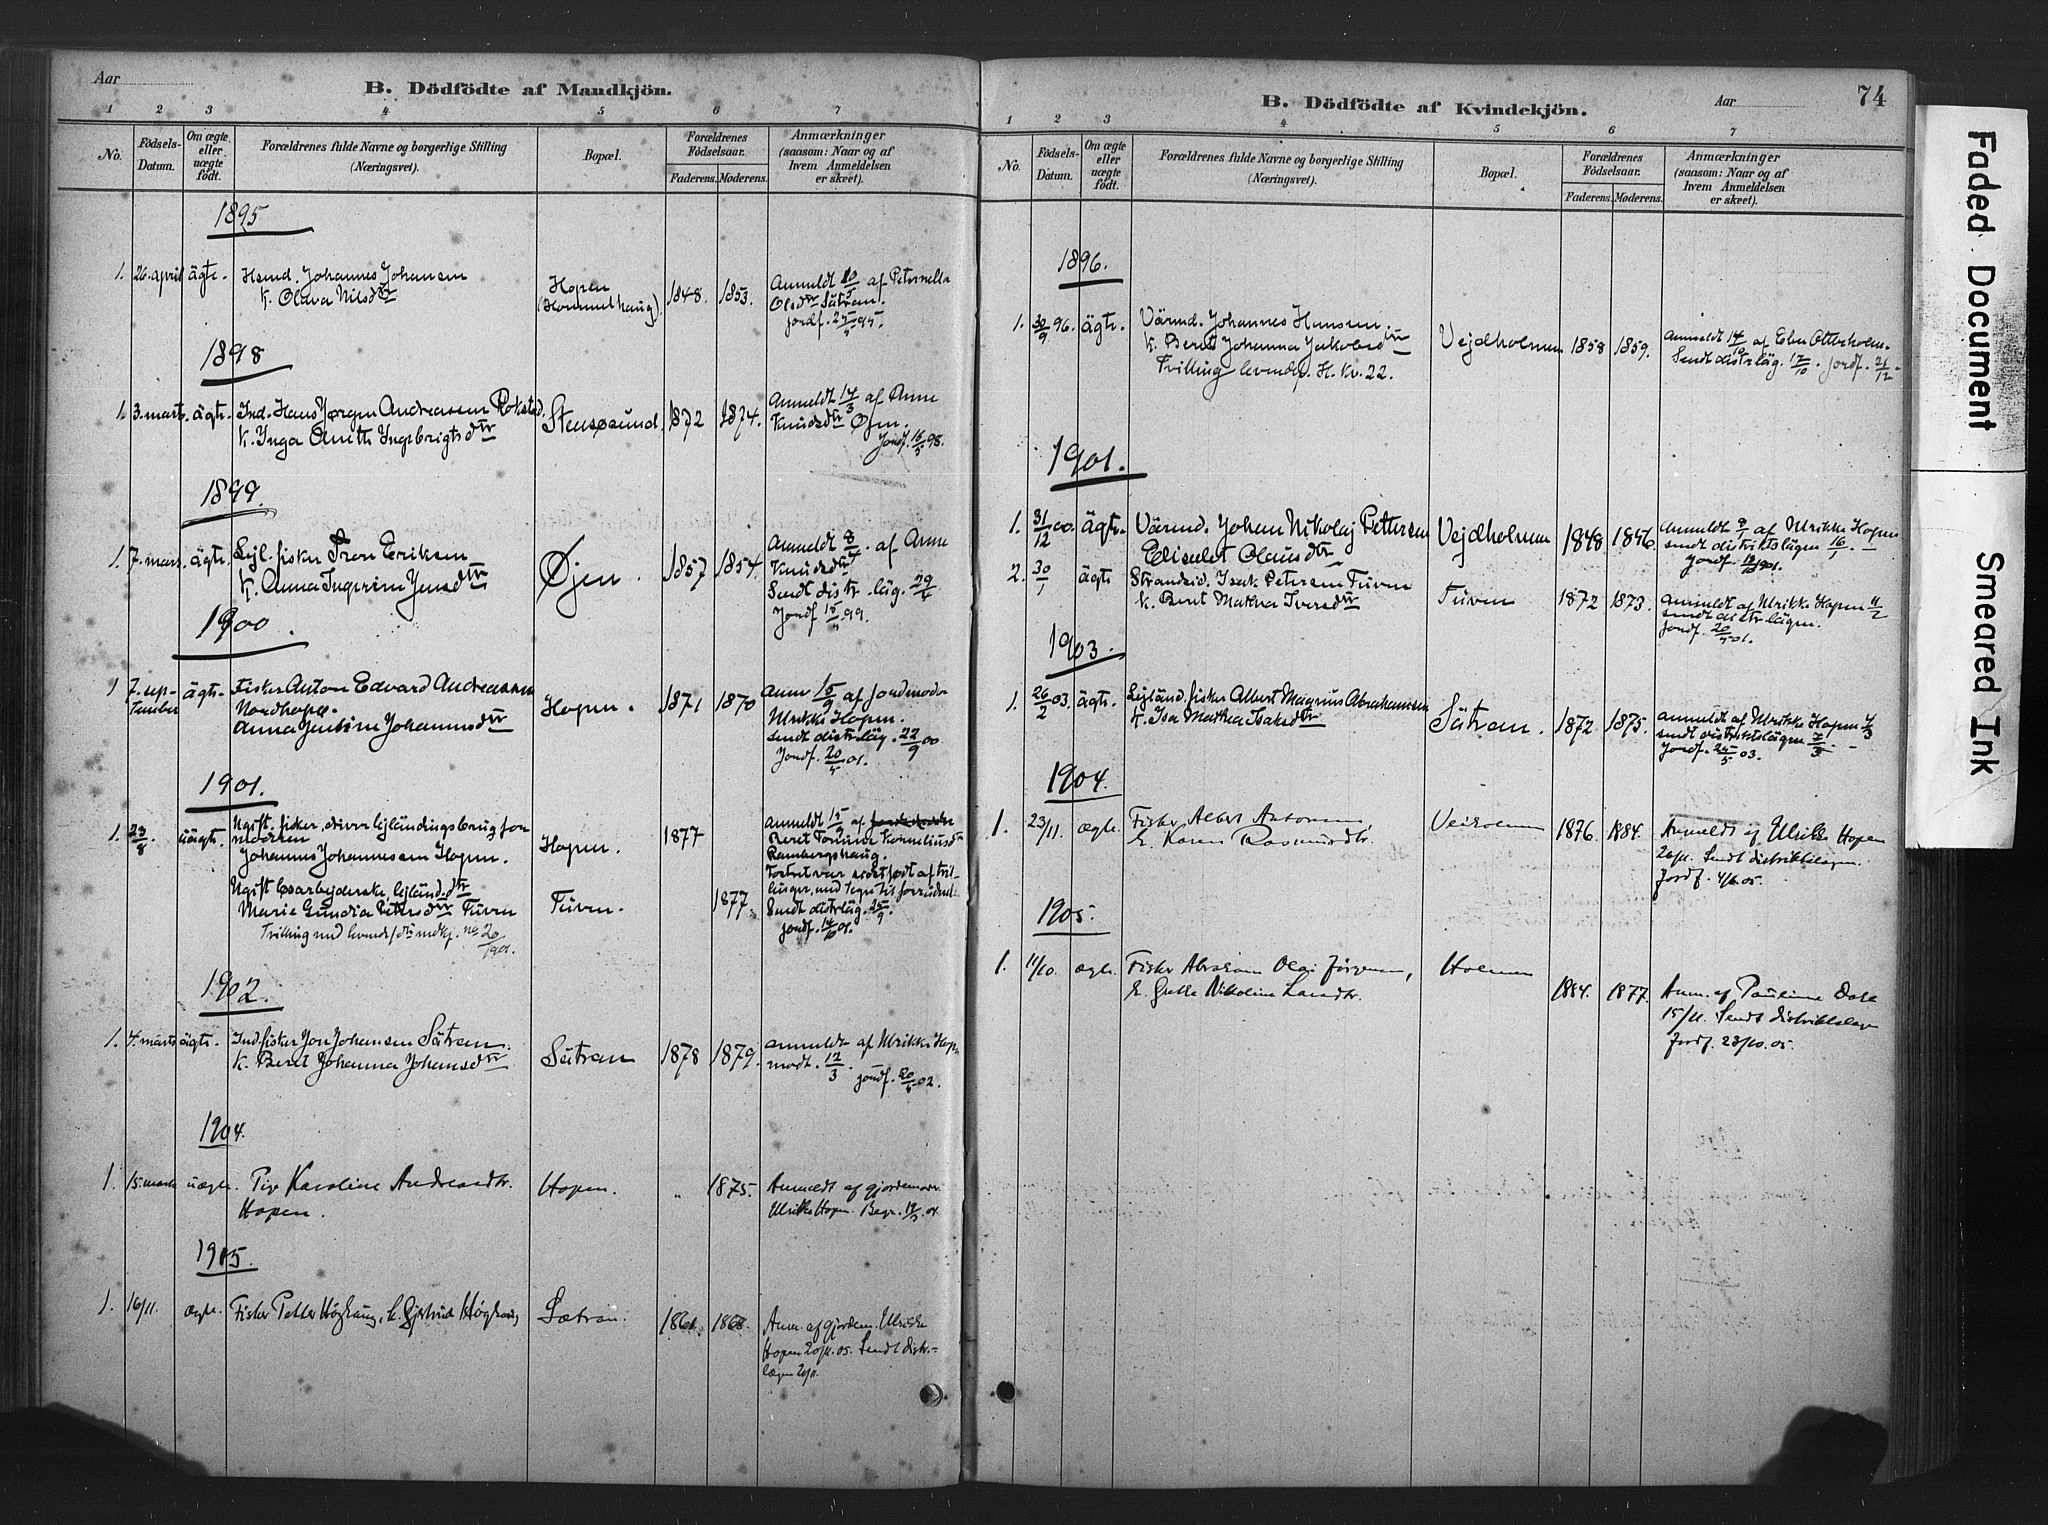 Aar
B. Dödfödte af Mandkjön.
1 2 3 4 5 6 7
No.
Födsels-
Datum.
Om ægte
eller
uægte
födt.
Forældrenes fulde Navne og borgerlige Stilling
(Næringsvei).
Bopæl.
Forældrenes
Födselsaar.
Faderens. Moderens.
Anmærkninger
(saasom: Naar og af
hvem Anmeldelsen
er skeet).
1895
1. 26. april ägte. Hsmd. Johannes Johansen
K. Olava Nilsdtr
Hopen
(Hommelhaug)
1848. 1853.
Anmeldt 10/5 af Peternella
Olsdtr Sätran.
jordf. 25/5 95.
1898
1. 3. marts. ägte. Ind. Hans Jørgen Andreasen Rokstad.
K. Inga Anette Ingebrigtsdtr
Stensøsund. 1872 1874.
Anmeldt 14/3 af Anne
Knudsdtr Øjen.
Jordf. 15/5 98.
1899.
1. 7. mars. ägte. Lejl. fisker Tron Eriksen
K. Anna Ingerine Jensdtr
Øjen. 1857 1854.
Anmeldt 8/4. af Anne
Knudsdtr
Sendt distr. läg. 29/4
Jordf. 15/5 99.
1900.
1 7. sep-
tember
ägte. Fisker Anton Edvard Andreassen
Nordhopen.
Anna Jentine Johannesdtr
Hopen. 1871 1870
anm 15/9 af Jordmoder
Ulrikke Hopen.
sendt distrläg. 22/9 00
Jordf. 20/5 01.
1901.
1. 23/8. uägte. Ugift. fisker, driver lejländingsbrug for
moderen
Johannes Johannessen Hopen.
Hopen. 1877
Ugift løsarbejderske, lejländ. dtr
Marie Gundia Petersdtr Tuven
Tvilling med levende født mdkj. no 20/1901.
Tuven. 1877.
anmeldt 15/9 af
Beret Forune Korneliusdtr
Rambergshaug.
Fostret var sidst født af tvil-
linger, med tegn til forrådnel-
Sendt distrläg. 25/9.
jordf. 14/10 01.
1902.
1. 4. marts ägte. Ind. fisker Jon Johansen Sätran.
K. Beret Johanna Johansdtr
Sätran 1878 1879.
anmeldt af Ulrikke Hopn
modt. 12/3. jordf. 20/5 02.
1904.
1. 15. marts uægte. Pige Karoline Andreasdtr.
Hopen.
Hopen. " 1875.
Anmeldt af gjordemoder
Ulrikke Hopen. Begr. 19/3. 04
1905.
1. 16/11. ægte. Fisker Petter Höghaug, h. Gjertrud Höghaug
Sætran. 1861. 1868.
Anm. af gjordem. Ulrikke
Hopen 20/11. 05. Sendt distr.-
lægen 20/11.
74
B. Dödfödte af Kvindekjön.
Aar
1 2 3 4 5 6 7
No.
Födsels-
Datum.
Om ægte
eller
uægte
födt.
Forældrenes fulde Navne og borgerlige Stilling
(Næringsvei).
Bopæl.
Forældrenes
Födselsaar.
Faderens. Moderens.
Anmærkninger
(saasom: Naar og af
hvem Anmeldelsen
er skeet).
1896.
1. 30/9 96. ägte. Värmd. Johannes Hansen
K. Beret Johanna Jakobsdtr
Tvilling levende H. Kv. 22.
Vejdholmen 1858 1859.
anmeldt 14/10 af Elen Otterholm.
Sendt distrläg. 17/10. jordf. 21/12 -
1901.
1. 31/12 00. ägte. Värmd. Johan Nikolaj Pettersen
Eliselet Olausdtr
Vejdholmen 1848. 1846.
anmeldt 9/1 af Ulrikke Hopen
sendt distriktslägen 16/1. -
jordf. 12/5 1901.
2. 30/1 ägte Strandsid. Isak Petersen Tuven
K. Beret Mathea Iversdtr
Tuven 1872 1873.
anmeldt af Ulrikke Hopen 11/2
sendt distrlägen.
Jordf. 20/5 01.
1903.
1. 26/2 03. ägte. Lejländ. fisker Albert Magnus Abrahamsen
K. Isa Mathea Isaksdtr
Sätran. 1872. 1875.
anmeldt af Ulrikke Hopen 7/3
sendt distriktslägen 7/3. -
Jordf. 25/5 03.
1904.
1. 23/11. ægte. Fisker Albert Antonsen
h. Karen Rasmusdtr.
Veiholmen 1876. 1884.
Anmeldt af Ulrikke Hopen
26/11. Sendt distriktslægen.
Jordf. 4/6. 05.
1905.
1. 11/10. ægte. Fisker Abraham Olai Jörgensen,
h. Grethe Nikoline Larsdtr.
Holmen
1884. 1877.
Anm. af Pauline Dale
15/11. Sendt distriktslægen
Jordf. 23/10. 05.
Faded Document
Smeared Ink